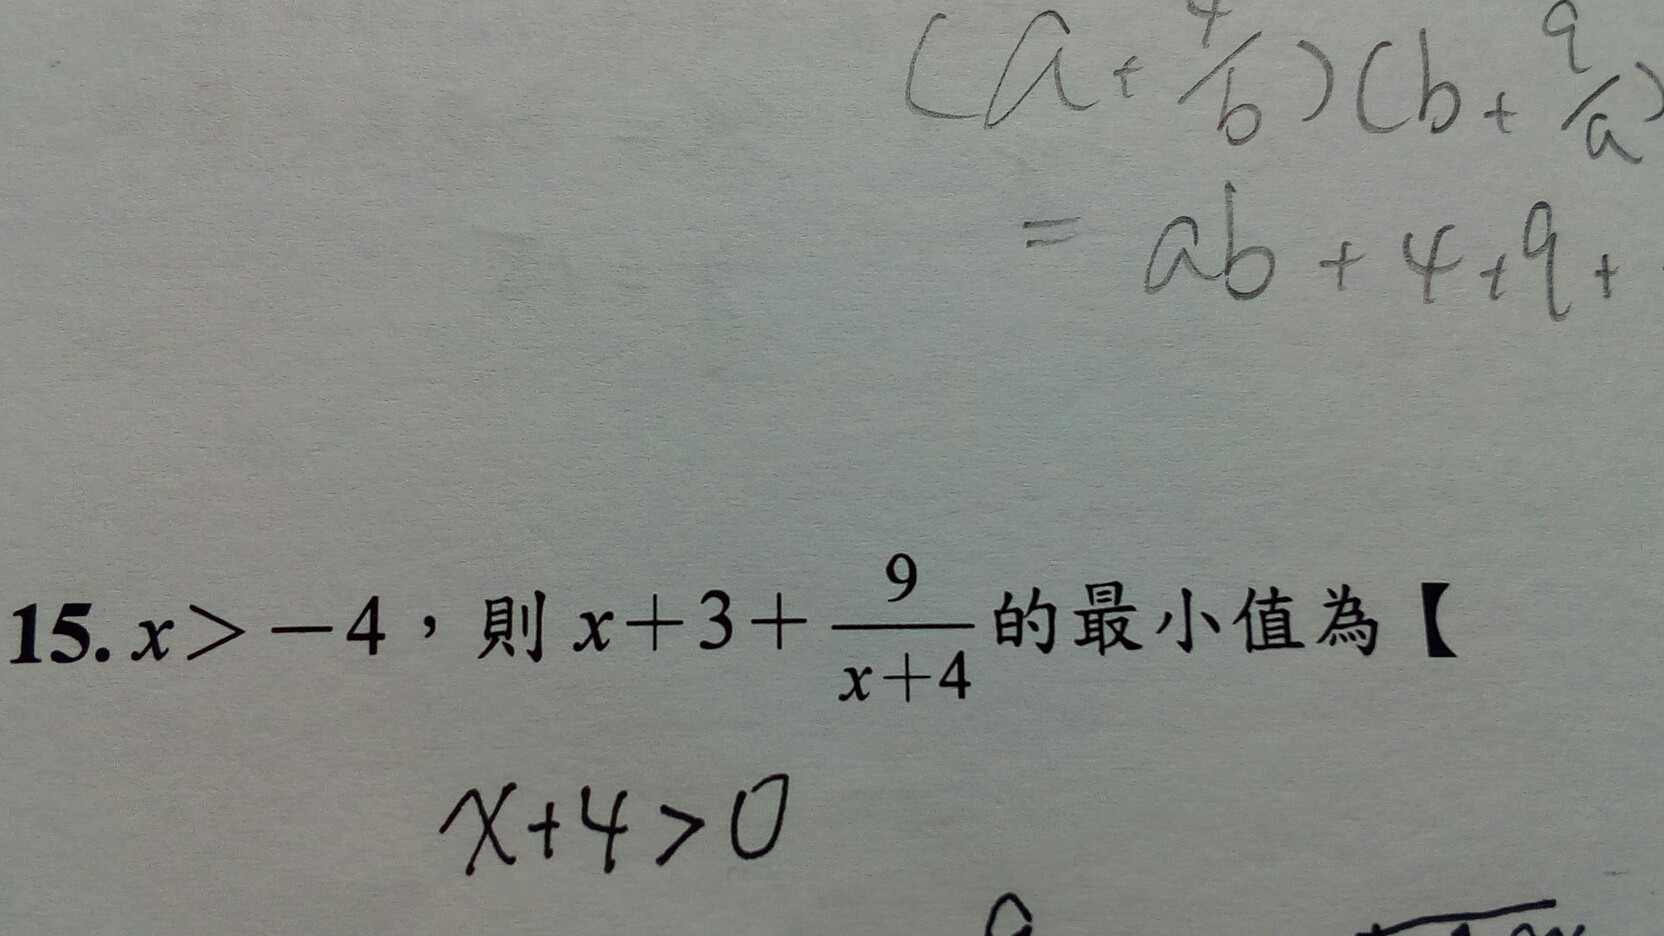 (a+4/b)(b+9/a)
= ab+4+9+
15. x>−4，則 x+3+9/(x+4) 的最小值為【
x+4>0